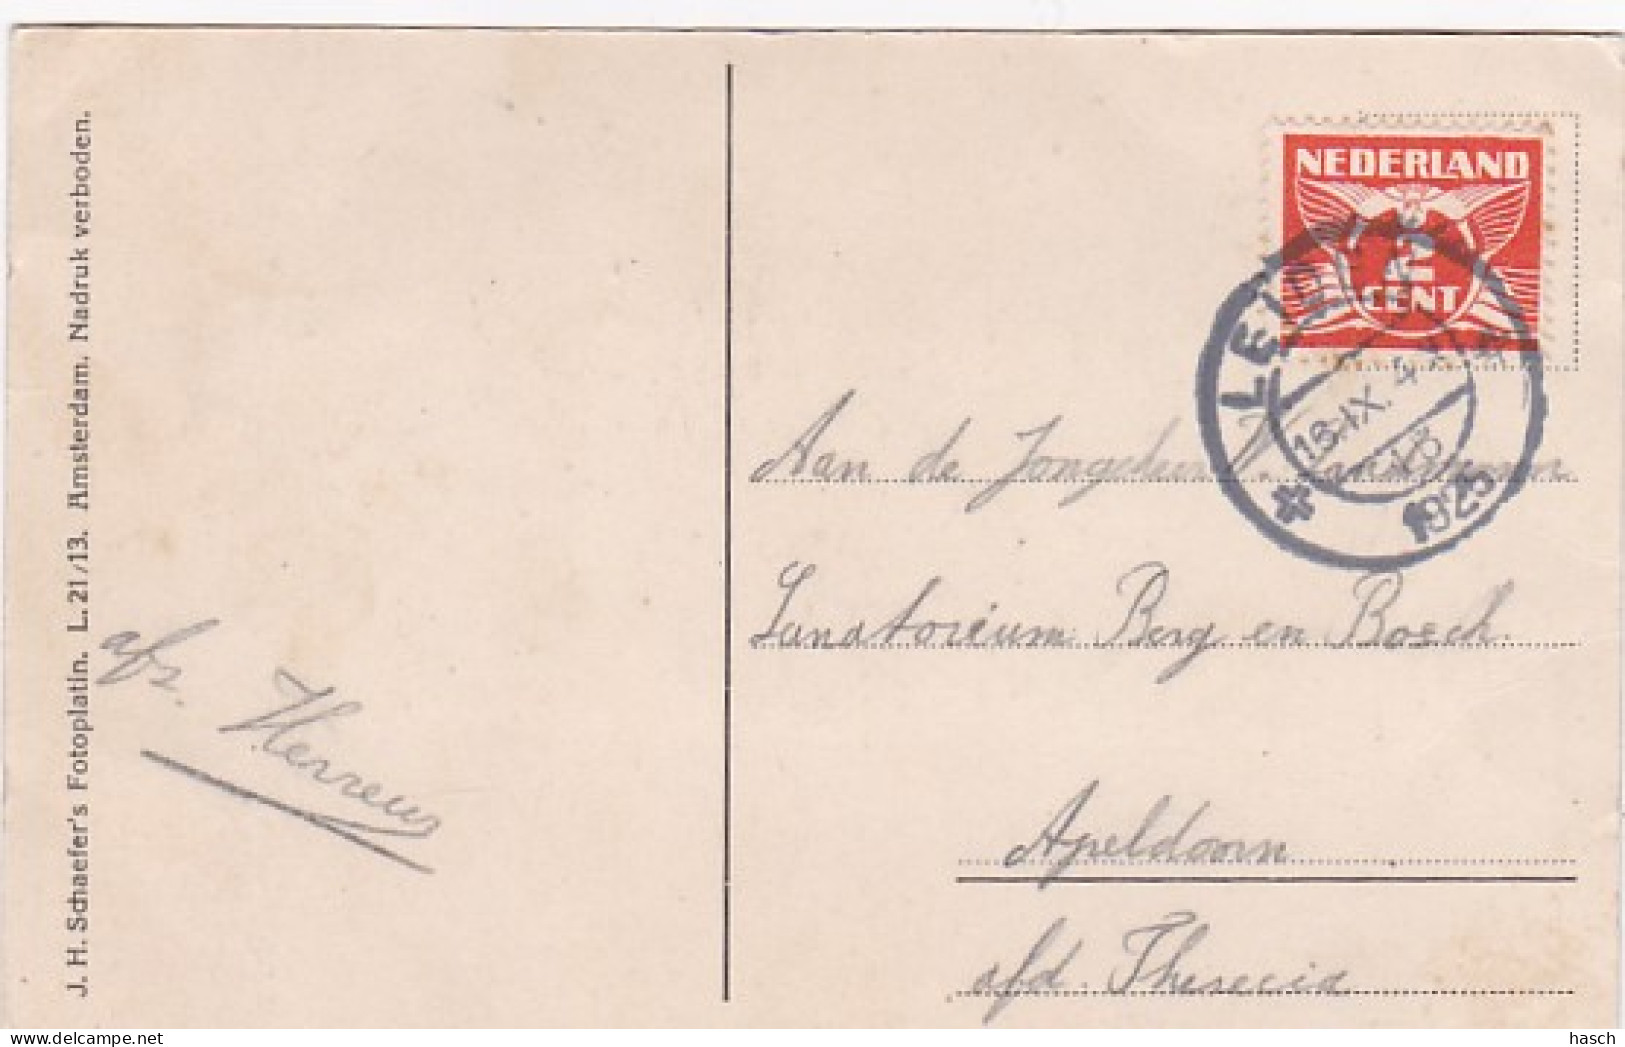 J. H. Schaefer's Fotoplatin. L. 21/13. Amsterdam. Nadruk verboden.
NEDERLAND
2
CENT
LEIDEN
18.IX.4
1925
Aan de
Sanatorium Berg en Bosch.
Apeldoorn
afd. Therecia
afs.
hasch